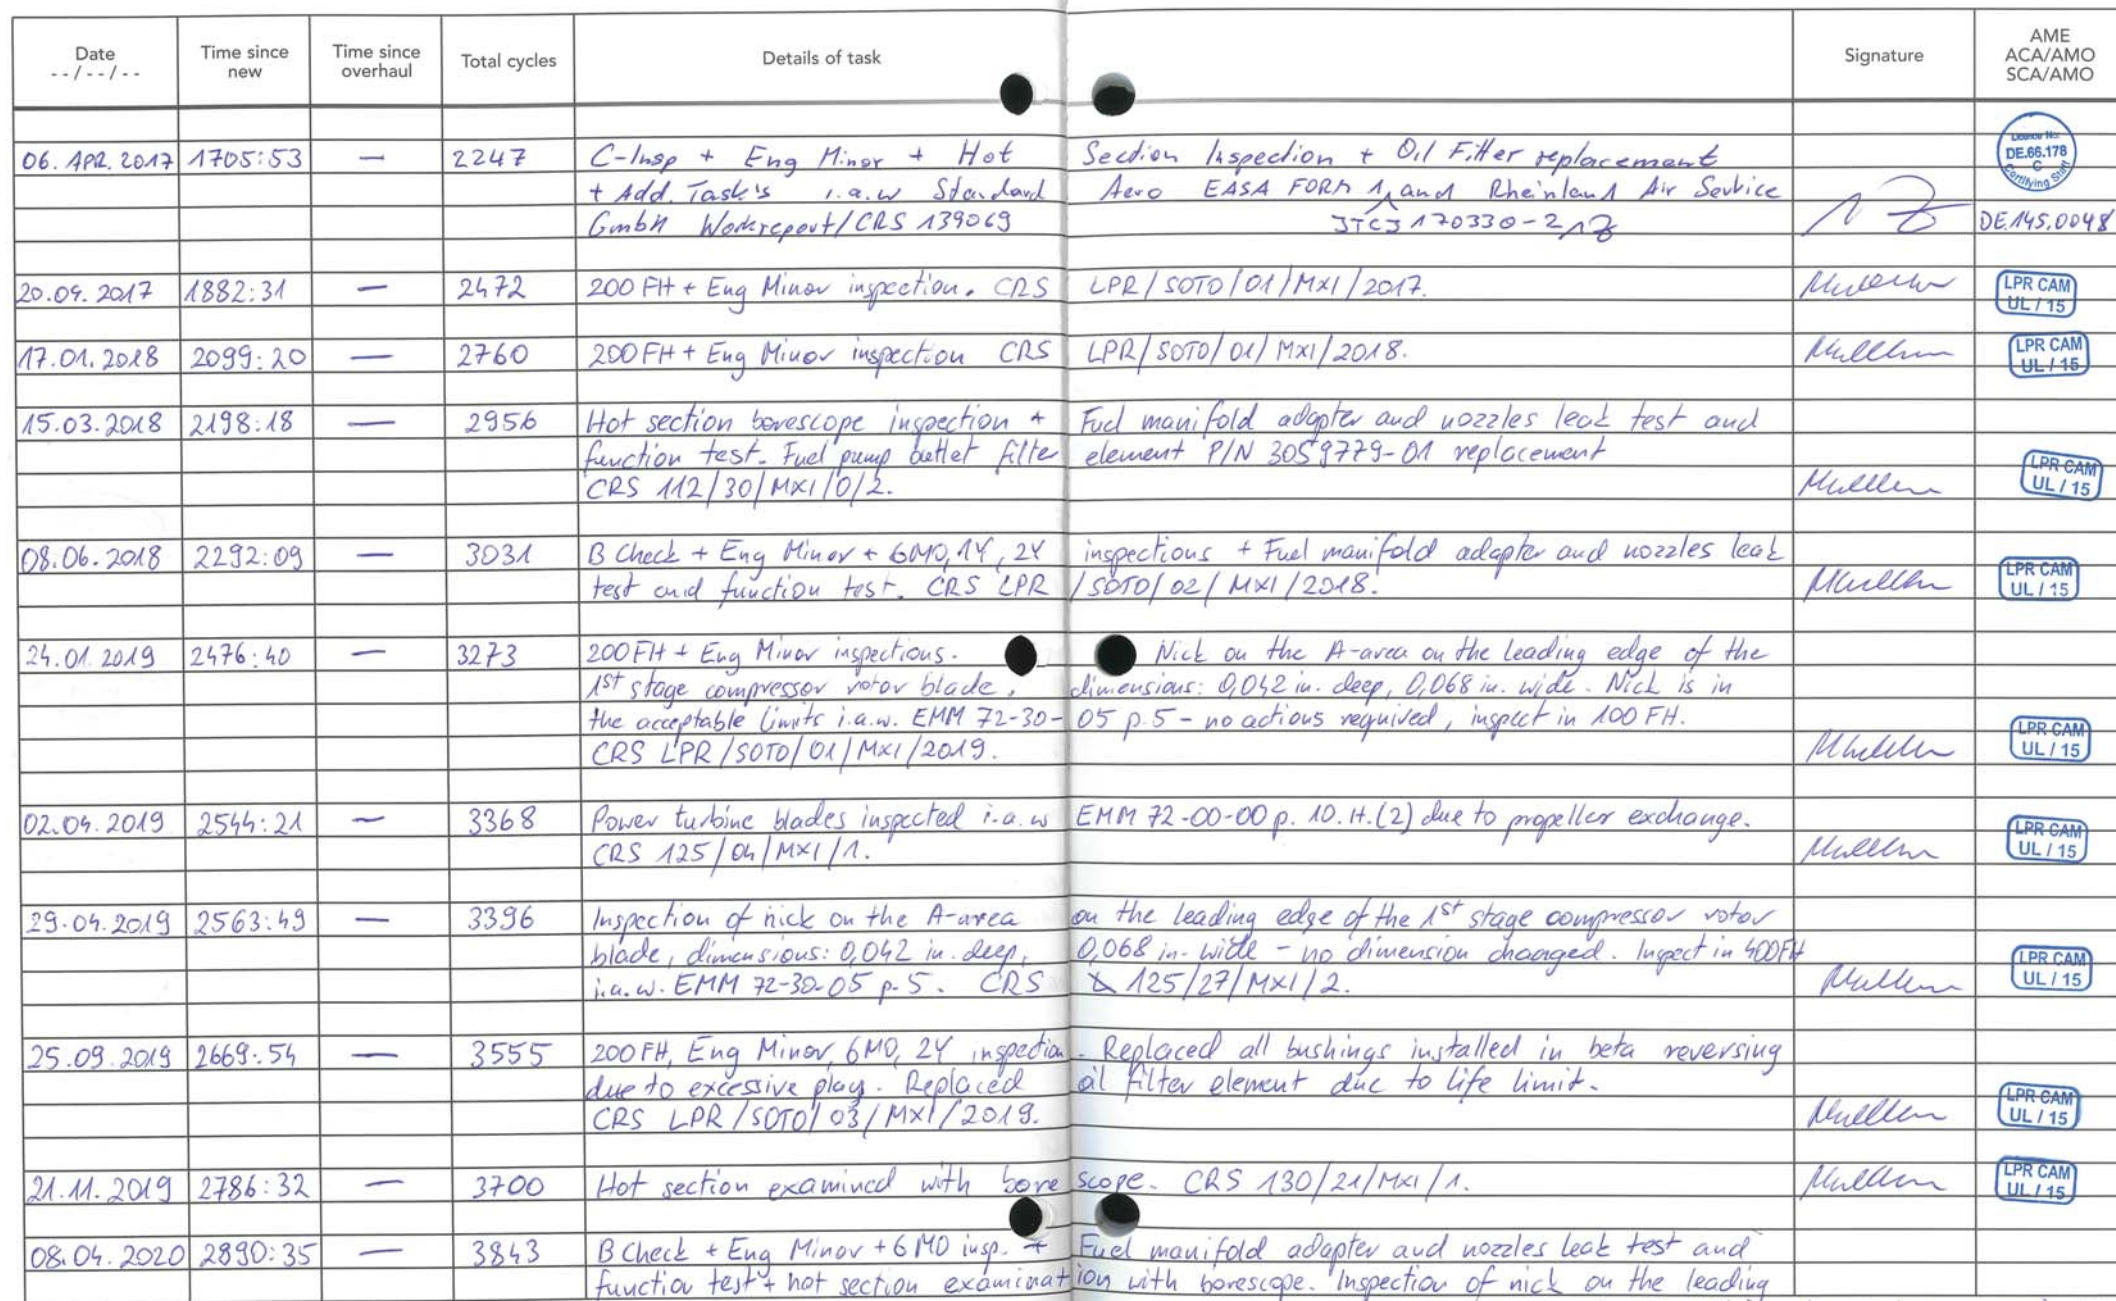 Date Time since Time since Total cycles Details of task Signature AME
--/--/-- new overhaul ACA/AMO
SCA/AMO
Licence No:
DE.66.178
C
Certifying Staff
06. APR. 2017 1705:53 — 2247 C-Insp + Eng Minor + Hot Section Inspection + Oil Filter replacement
+ Add. Task's i.a.w Standard Aero EASA FORM 1 and Rheinland Air Service
GmbH Workreport/CRS 139069 170330-2 DE.145.0048
20.09.2017 1882:31 — 2472 200 FH + Eng Minor inspection. CRS LPR/SOTO/01/MXI/2017. LPR CAM
UL / 15
17.01.2018 2099:20 — 2760 200 FH + Eng Minor inspection CRS LPR/SOTO/01/MXI/2018. LPR CAM
UL / 15
15.03.2018 2198:18 — 2956 Hot section borescope inspection + Fuel manifold adapter and nozzles leak test and
function test. Fuel pump outlet filter element P/N 3059779-01 replacement LPR CAM
CRS 112/30/MXI/0/2. UL / 15
08.06.2018 2292:09 — 3031 B Check + Eng Minor + 6MO, 1Y, 2Y inspections + Fuel manifold adapter and nozzles leak LPR CAM
test and function test. CRS LPR /SOTO/02/MXI/2018. UL / 15
24.01.2019 2476:40 — 3273 200 FH + Eng Minor inspections. Nick on the A-area on the leading edge of the
1st stage compressor rotor blade, dimensions: 0,042 in. deep, 0,068 in. wide. Nick is in
the acceptable limits i.a.w. EMM 72-30-05 p.5 - no actions required, inspect in 100 FH. LPR CAM
CRS LPR/SOTO/01/MXI/2019. UL / 15
02.04.2019 2544:21 — 3368 Power turbine blades inspected i.a.w EMM 72-00-00 p. 10. H.(2) due to propeller exchange. LPR CAM
CRS 125/04/MXI/1. UL / 15
29.04.2019 2563:49 — 3396 Inspection of nick on the A-area on the leading edge of the 1st stage compressor rotor
blade, dimensions: 0,042 in. deep, 0,068 in. wide - no dimension changed. Inspect in 400FH LPR CAM
i.a.w. EMM 72-30-05 p.5. CRS 125/27/MXI/2. UL / 15
25.09.2019 2669:54 — 3555 200 FH, Eng Minor, 6MO, 2Y inspection. Replaced all bushings installed in beta reversing
due to excessive play. Replaced oil filter element due to life limit. LPR CAM
CRS LPR/SOTO/03/MXI/2019. UL / 15
21.11.2019 2786:32 — 3700 Hot section examined with borescope. CRS 130/21/MXI/1. LPR CAM
UL / 15
08.04.2020 2890:35 — 3843 B Check + Eng Minor + 6 MO insp. + Fuel manifold adapter and nozzles leak test and
function test + hot section examination with borescope. Inspection of nick on the leading